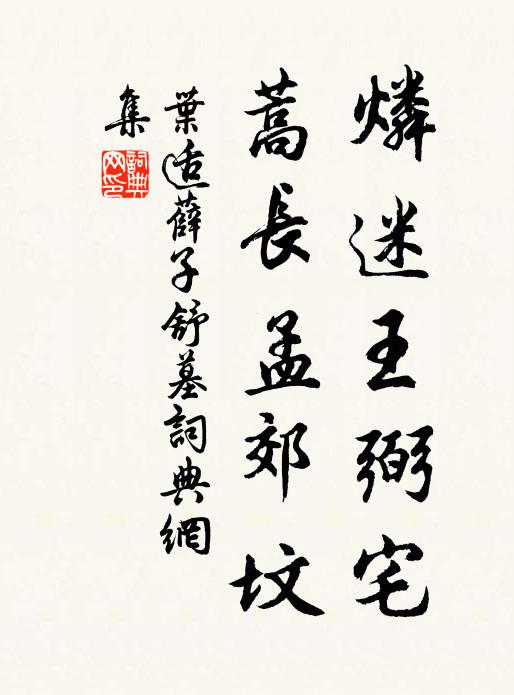 燐迷王弼宅
蒿長孟郊墳
葉適薛子舒墓詞典網
集
詞典網印